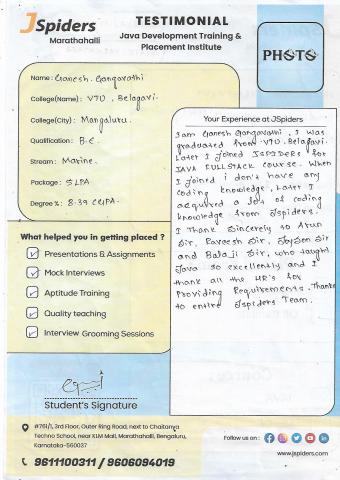 JSpiders
Marathahalli
TESTIMONIAL
Java Development Training &
Placement Institute
PHOTO
Name: Ganesh. Gangavathi
College(Name): VTU, Belagavi.
College(City): Mangaluru.
Qualification: B.E.
Stream: Marine.
Package: 5 LPA
Degree %: 8.39 CGPA.
What helped you in getting placed ?
Presentations & Assignments
Mock Interviews
Aptitude Training
Quality teaching
Interview Grooming Sessions
Your Experience at JSpiders
Iam Ganesh Gangavathi, I was
graduated from VTU, Belagavi.
Later I joined JSPIDERS for
JAVA FULLSTACK course. When
I joined i don't have any
coding knowledge, Later I
acquired a lot of coding
knowledge from Jspiders.
I Thank Sincerely to Arun
Sir, Raveesh Sir, Jaysen Sir
and Balaji Sir, who taught
Java so excellently and I
thank all the HR's for
Providing Requirements. Thanks
to entire Jspiders Team.
Student's Signature
#761/1, 3rd Floor, Outer Ring Road, next to Chaitanya
Techno School, near KLM Mall, Marathahalli, Bengaluru,
Karnataka-560037
9611100311 / 9606094019
Follow us on :
www.jspiders.com